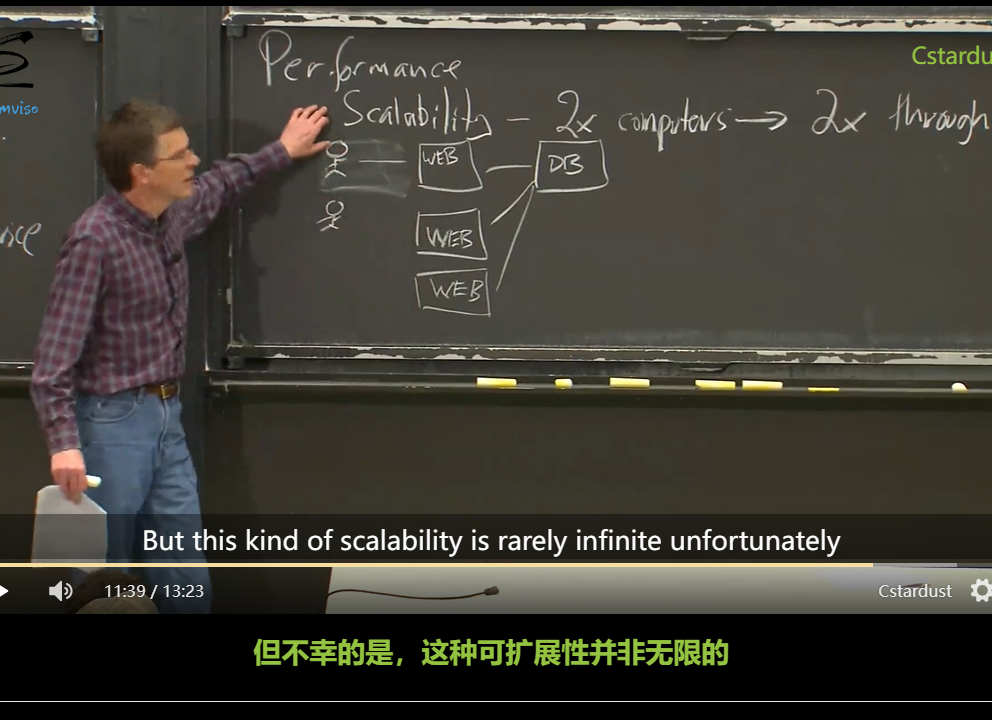 Performance
Cstardu
mviso
Scalability – 2x computers → 2x through
WEB
DB
WEB
WEB
But this kind of scalability is rarely infinite unfortunately
11:39 / 13:23
Cstardust
但不幸的是，这种可扩展性并非无限的